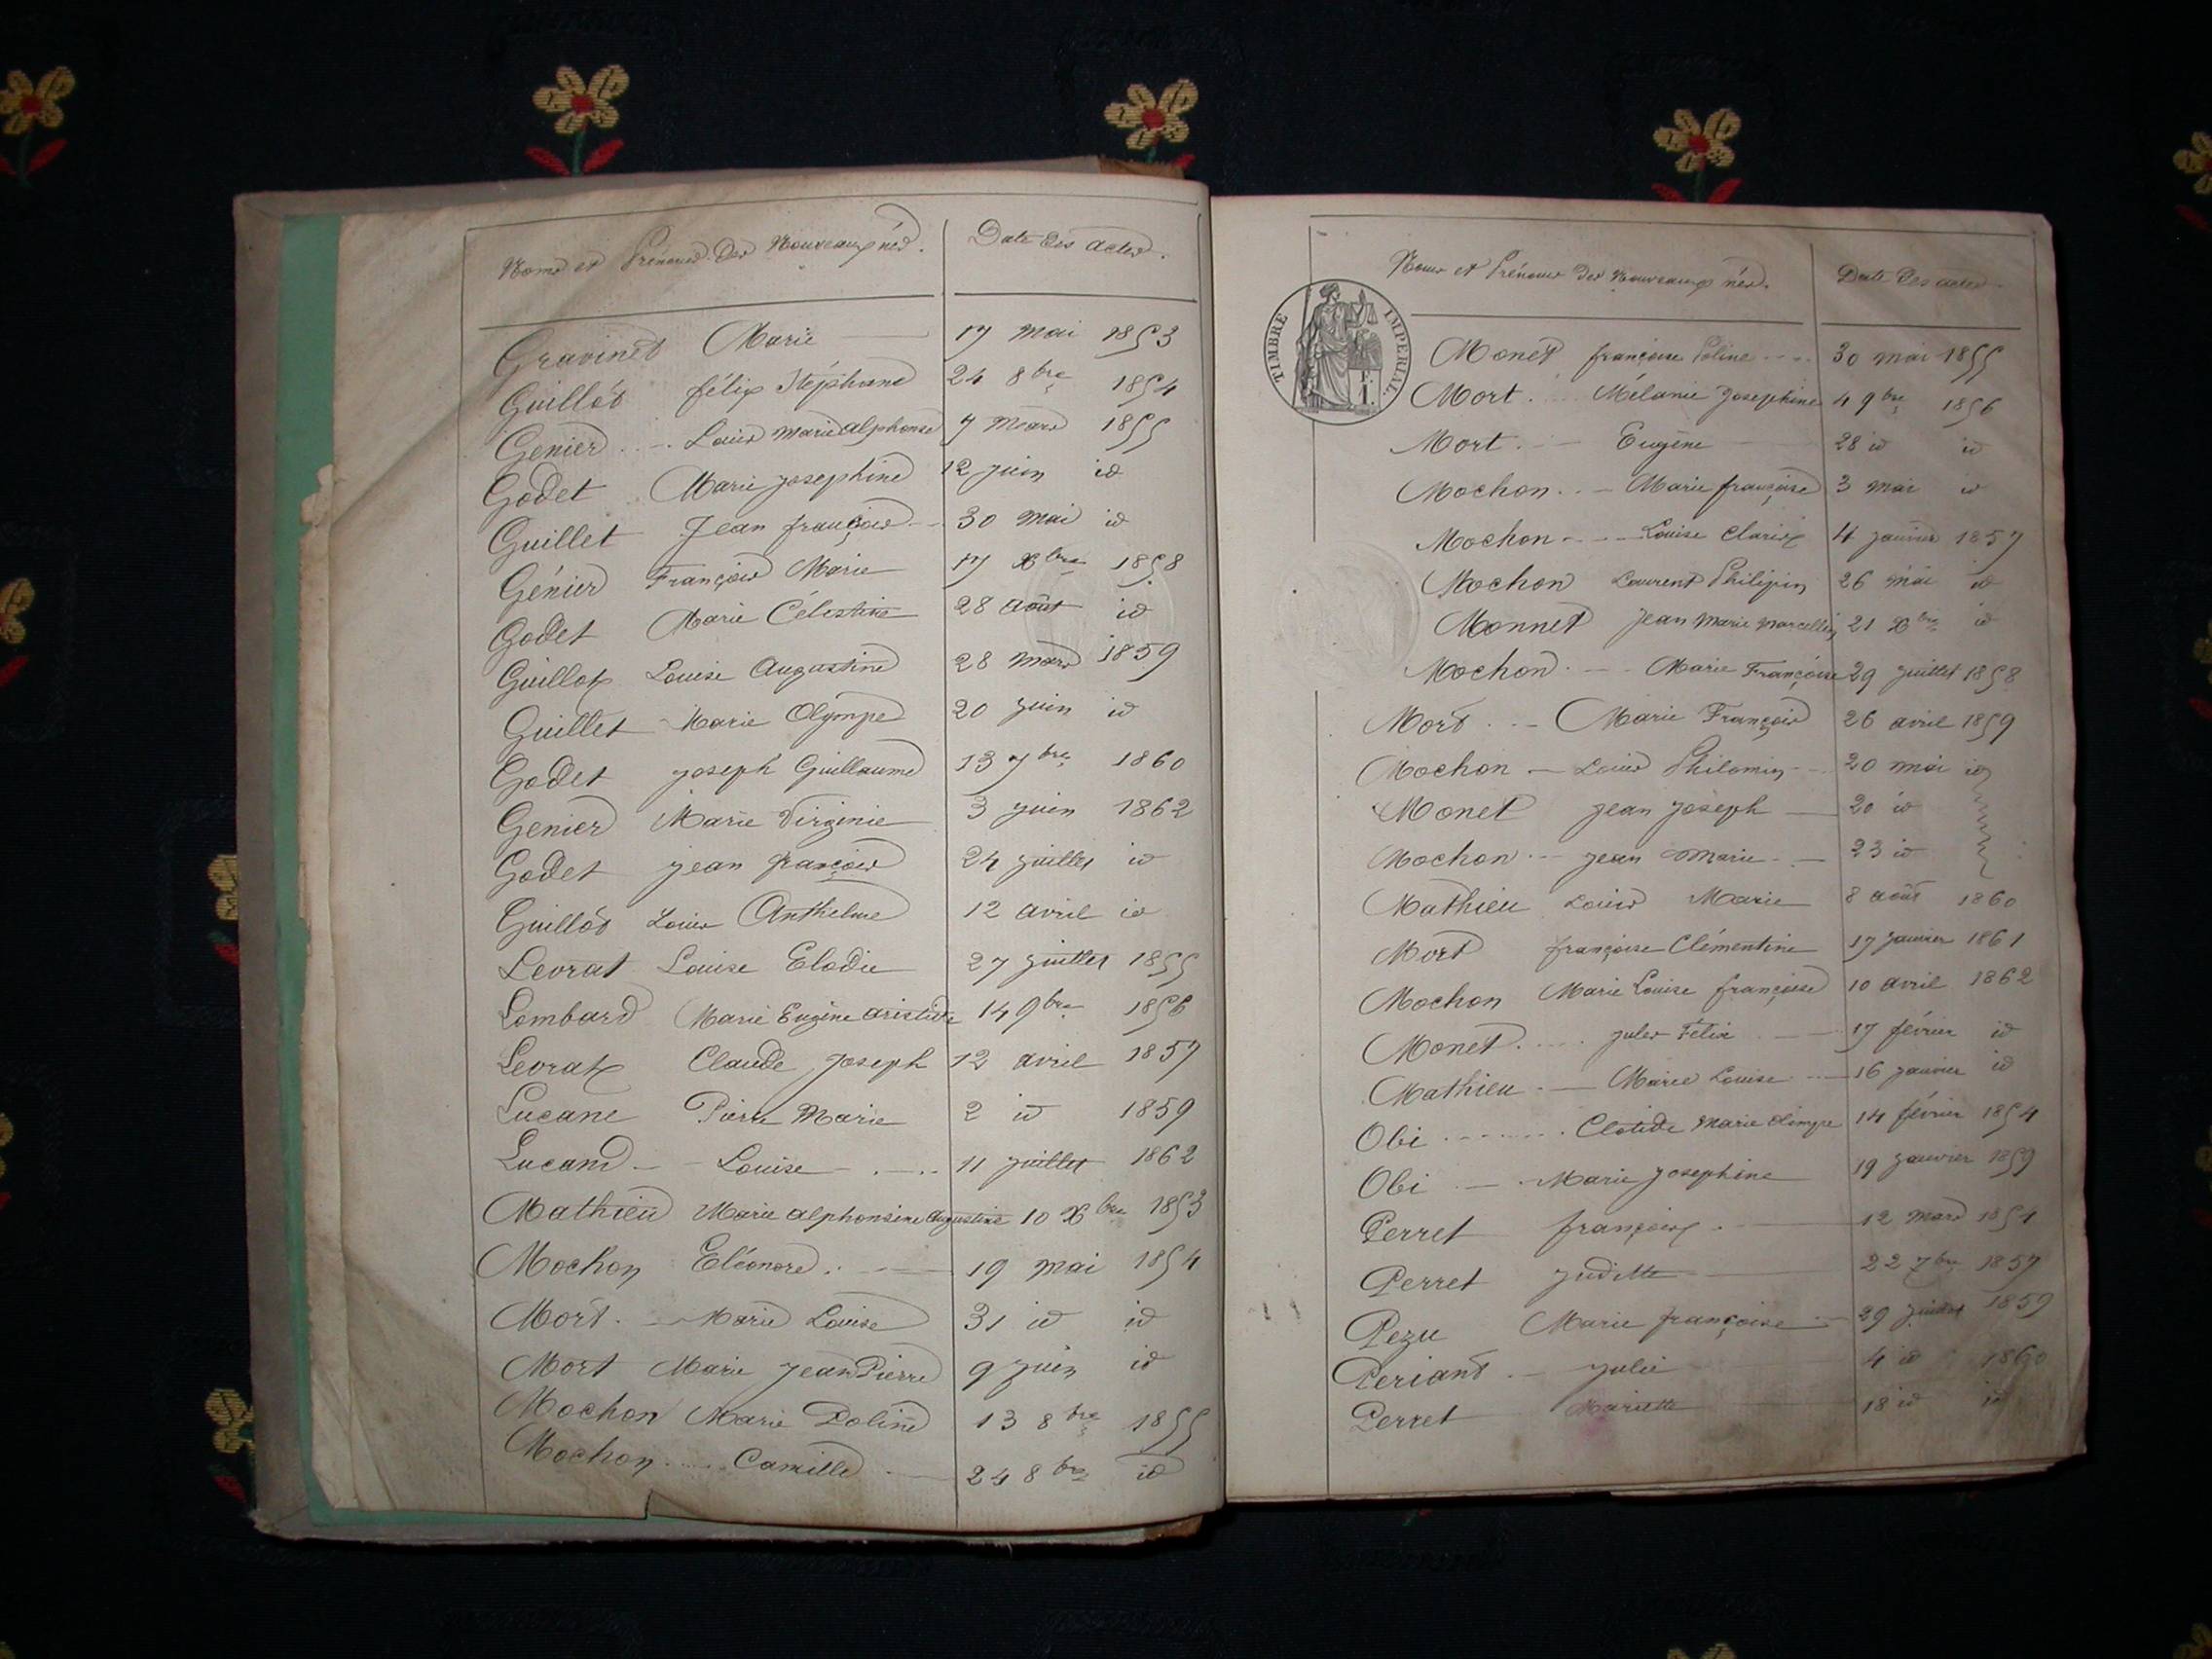 Noms et Prénoms des Nouveaux nés. Date des actes.
Gravinet Marie 17 mai 1853
Guillot félix Stéphane 24 8bre 1854
Genier Louis marie alphonse 7 mars 1855
Godet Marie josephine 12 juin id
Guillet Jean françois 30 mai id
Génier François Marie 17 Xbre 1858
Godet Marie Célestine 28 août id
Guillot Louise Augustine 28 mars 1859
Guillet Marie Olympe 20 juin id
Godet joseph Guillaume 13 7bre 1860
Genier Marie Virginie 3 juin 1862
Godet jean françois 24 juillet id
Guillot Louis Anthelme 12 avril id
Levrat Louise Elodie 27 juillet 1855
Lombard Marie Eugène aristide 14 9bre 1856
Levrat Claude joseph 12 avril 1857
Lucane Pierre Marie 2 id 1859
Lucand Louise 11 juillet 1862
Mathieu Marie alphonsine augustine 10 Xbre 1853
Mochon Eléonore 19 mai 1854
Mort Marie Louise 31 id id
Mort Marie Jean Pierre 9 juin id
Mochon Marie Poline 13 8bre 1855
Mochon Camille 24 8bre id
Noms et Prénoms des Nouveaux nés. Date des actes
TIMBRE IMPERIAL
Monet françoise Poline 30 mai 1855
Mort. Mélanie Josephine 4 9bre 1856
Mort. Eugène 28 id id
Mochon Marie françoise 3 mai id
Mochon Louise Clarisse 4 janvier 1857
Mochon Laurent Philipin 26 mai id
Monnet jean marie marcellin 21 Xbre id
Mochon Marie Françoise 29 juillet 1858
Mort Marie François 26 avril 1859
Mochon Louis Philomin 20 mai id
Monet jean joseph 20 id
Mochon jean marie 23 id
Mathieu Louis Marie 8 août 1860
Mort françoise Clémentine 17 janvier 1861
Mochon Marie Louise françoise 10 avril 1862
Monet jules Félix 17 février id
Mathieu Marie Louise 16 janvier id
Obi Clotide Marie olimpe 14 février 1854
Obi Marie josephine 19 janvier 1859
Perret 12 mars
Perret juditte 22 7bre 1857
Pezu Marie françoise 29 juillet 1859
Periant julie 4 id 1860
Perret Mariette 18 id id